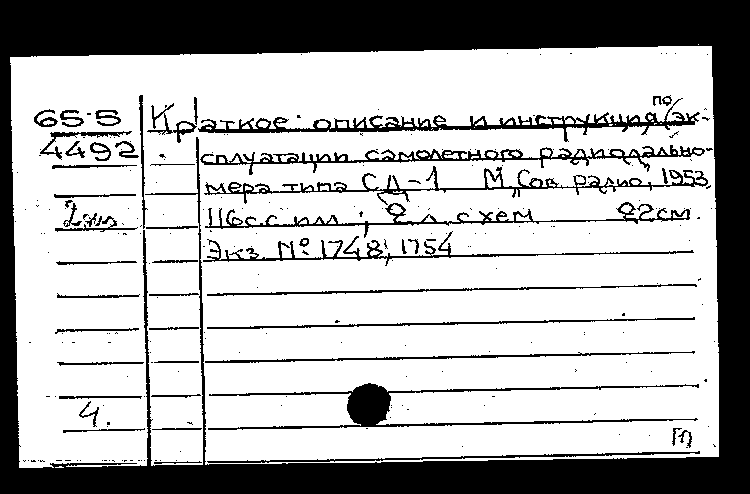 65-5
4492
2 экз
4.
Краткое описание и инструкция по эк-
сплуатации самолетного радиодально-
мера типа СД-1 М. „Сов. радио", 1953
116 с. с илл.; 2 л. схем 22 см.
Экз. № 1748; 1754
[1]